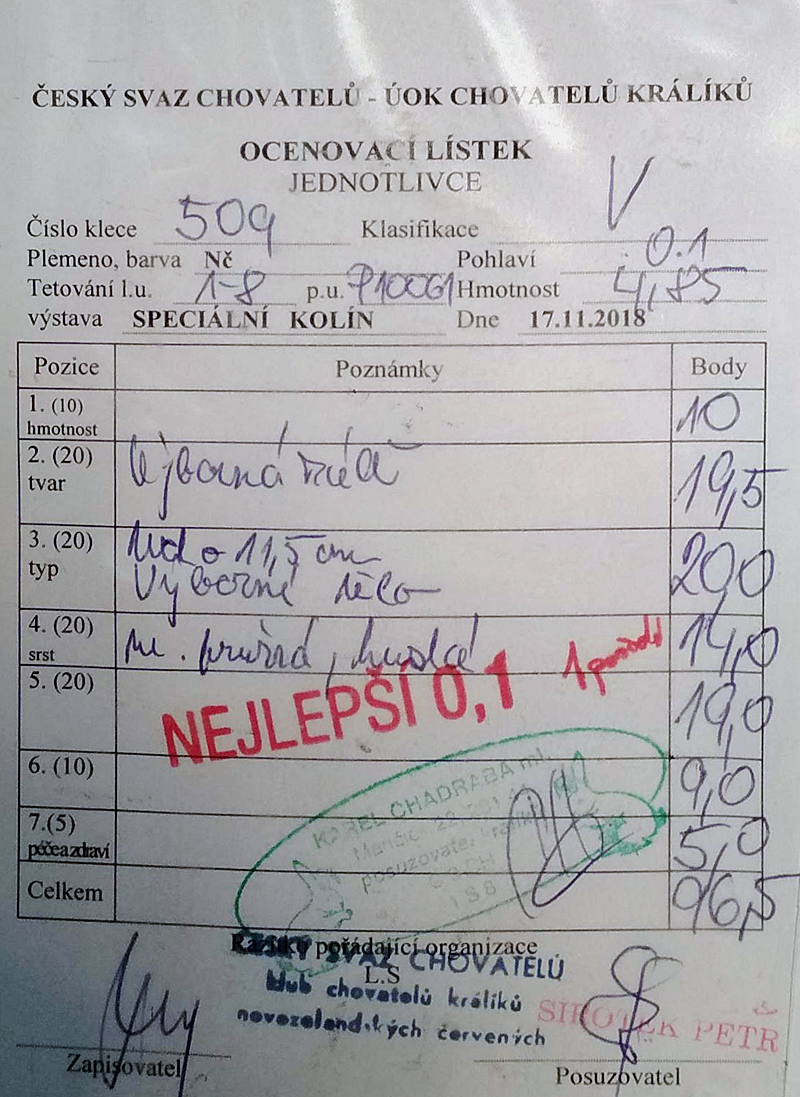 ČESKÝ SVAZ CHOVATELŮ - ÚOK CHOVATELŮ KRÁLÍKŮ
OCENOVACÍ LÍSTEK
JEDNOTLIVCE
Číslo klece 509 Klasifikace V
Plemeno, barva Nč Pohlaví 0.1
Tetování l.u. 1-8 p.u. P10061 Hmotnost 4,85
výstava SPECIÁLNÍ KOLÍN Dne 17.11.2018
Pozice Poznámky Body
1. (10) hmotnost 10
2. (20) tvar Výborná 19,5
3. (20) typ 11,5 cm 20,0
Výborné tělo
4. (20) srst pružná, 14,0
5. (20) 19,0
NEJLEPŠÍ 0,1 1
6. (10) 9,0
KAREL CHADRABA ml.
posuzovatel králíků
7.(5) péče a zdraví 5,0
Celkem 96,5
Razítko pořádající organizace
L.S
ČESKÝ SVAZ CHOVATELŮ
klub chovatelů králíků
novozelandských červených
SIROTEK PETR
Zapisovatel Posuzovatel